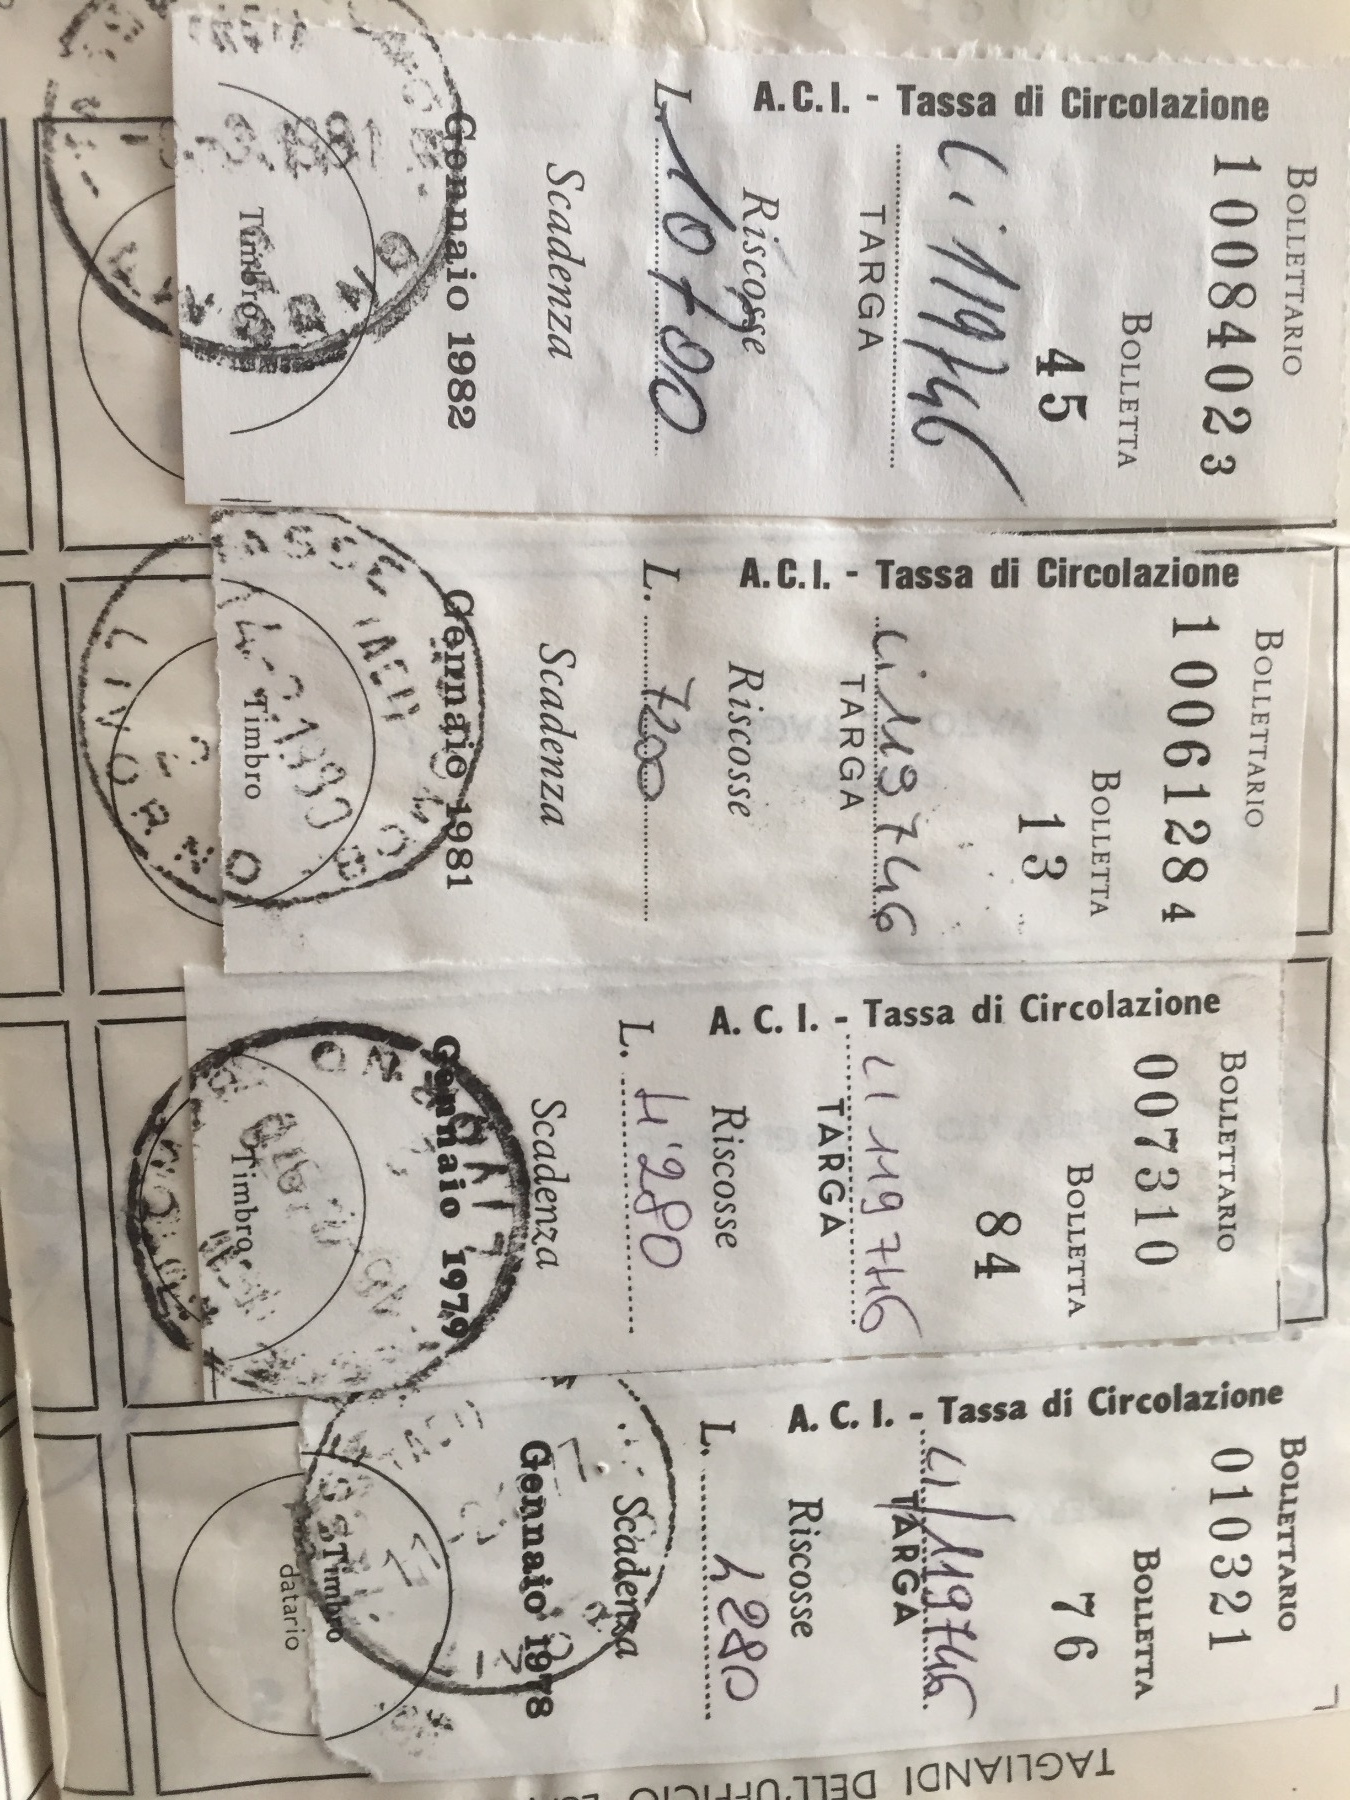 A.C.I. - Tassa di Circolazione
BOLLETTARIO
1008402 3
BOLLETTA
45
Li 119746
TARGA
Riscosse
L. 10790
Scadenza
Gennaio 1982
Timbro
A.C.I. - Tassa di Circolazione
BOLLETTARIO
1006128 4
BOLLETTA
13
Li 119746
TARGA
Riscosse
L. 7200
Scadenza
Gennaio 1981
Timbro
LIVORNO
A. C. I. - Tassa di Circolazione
BOLLETTARIO
007310
BOLLETTA
84
LI 119746
TARGA
Riscosse
L. 4'280
Scadenza
Gennaio 1979
Timbro
A. C. I. - Tassa di Circolazione
BOLLETTARIO
010321
BOLLETTA
76
LI/119746
TARGA
Riscosse
L. 4280
Scadenza
Gennaio 1978
Timbro
datario
TAGLIANDI DELL'UFFICIO